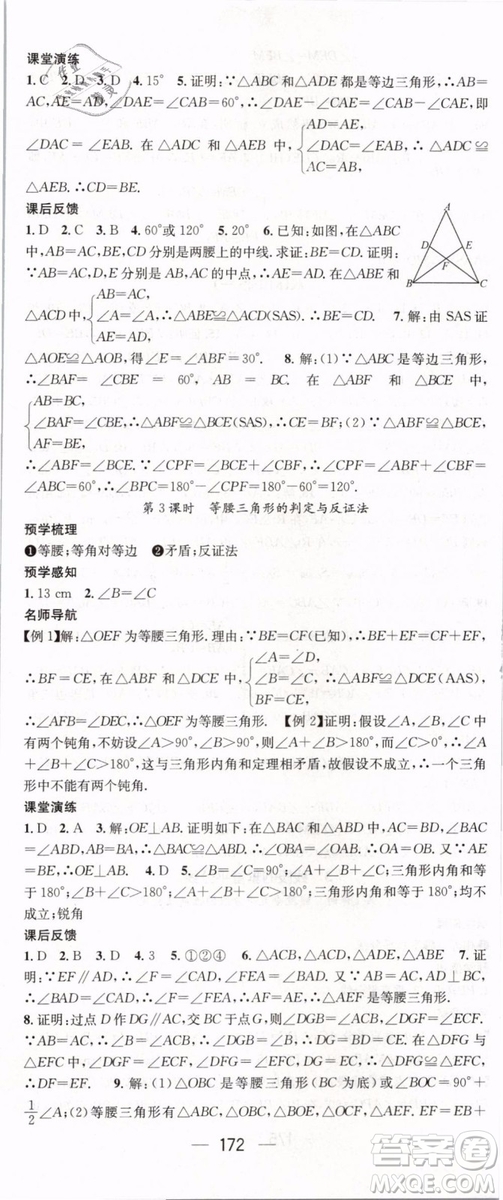 课堂演练
1. C  2. D  3. D  4. 15°  5. 证明：∵△ABC和△ADE都是等边三角形，∴AB=
AC，AE=AD，∠DAE=∠CAB=60°，∴∠DAE-∠CAE=∠CAB-∠CAE，即
∠DAC=∠EAB. 在△ADC和△AEB中，{AC=AB, ∠DAC=∠EAB, AD=AE, ∴△ADC≌
△AEB. ∴CD=BE.
课后反馈
1. D  2. C  3. B  4. 60°或120°  5. 20°  6. 已知：如图，在△ABC
中，AB=AC，BE、CD分别是两腰上的中线. 求证：BE=CD. 证明：
∵AB=AC，BE、CD是中线，∴AE=AD. 在△ABE和
△ACD中，{AB=AC, ∠A=∠A, AE=AD, ∴△ABE≌△ACD(SAS). ∴BE=CD.  7. 解：由SAS证
△AOE≌△AOB，得∠E=∠ABF=30°.  8. 解：(1)∵△ABC是等边三角形，
∴∠BAF=∠CBE=60°，AB=BC. 在△ABF和△BCE中，
{AB=BC, ∠BAF=∠CBE, AF=BE, ∴△ABF≌△BCE(SAS)；(2)∵△ABF≌△BCE，
∴∠ABF=∠BCE. ∴∠CPF=∠BCE+∠CBP=∠ABF+∠CBP=∠ABC. ∵
∠ABC=60°，∴∠CPF=60°. ∴∠BPC=180°-60°=120°.
第3课时 等腰三角形的判定与反证法
预学梳理
❶等腰；等角对等边 ❷矛盾；反证法
预学感知
1. 13 cm  2. ∠B=∠C
名师导航
【例1】解：△OEF为等腰三角形. 理由：∵BE=CF(已知)，∴BE+EF=CF+EF，
∴BF=CE，在△ABF和△DCE中，{∠A=∠D, ∠B=∠C, BF=CE, ∴△ABF≌△DCE(AAS)，
∴∠AFB=∠DEC，∴△OEF是等腰三角形. 【例2】证明：假设∠A、∠B、∠C中
有两个钝角，不妨设∠A>90°，∠B>90°，∵∠A+∠B+∠C>180°，
这与三角形内角和定理相矛盾，故假设不成立，∴一个三角
形中不能有两个钝角.
课堂演练
1. D  2. A  3. 解：OE⊥AB. 证明：在△BAC和△ABD中，AC=BD，∠BAC=
∠ABD，AB=BA. ∴△BAC≌△ABD. ∴∠OBA=∠OAB. ∴OA=OB. 又∵AE
=BE，∴OE⊥AB.  4. D  5. ∠B=∠C=90°；∠A+∠B+∠C；三角形内角和等
于180°；∠B+∠C<180°；∠A+∠B+∠C>180°；三角形内角和等于180°；
不成立；锐角
课后反馈
1. D  2. B  3. D  4. 3  5. ①②④  6. △ACB，△ACD，△ADE，△ABE  7. 证
明：∵EF∥AD，∴∠BAD=∠AFE，∠CAD=∠FEA. ∵△ABC是等腰三角形，
∴∠BAD=∠CAD，∴∠FEA=∠AFE. ∴△AEF为等腰三角形.
8. 证明：过点D作DG∥AC交BC于点G，则∠DGB=∠ACB，∠DGF=∠ECF. ∵
AB=AC，∴∠B=∠ACB. ∴∠B=∠DGB，∴DG=DB=CE. 在△DFG和
△EFC中，∠DGF=∠ECF，∠DFG=∠EFC，DG=EC，∴△DFG≌△EFC，
∴DF=EF.  9. 解：(1)△OBC是等腰三角形(BC为底)或∠BOC=90°+
½∠A；(2)等腰三角形有△ABC，△OBC，△EBO，△CFO，△AEF. EF=EB+
172
A
D
E
F
B
C